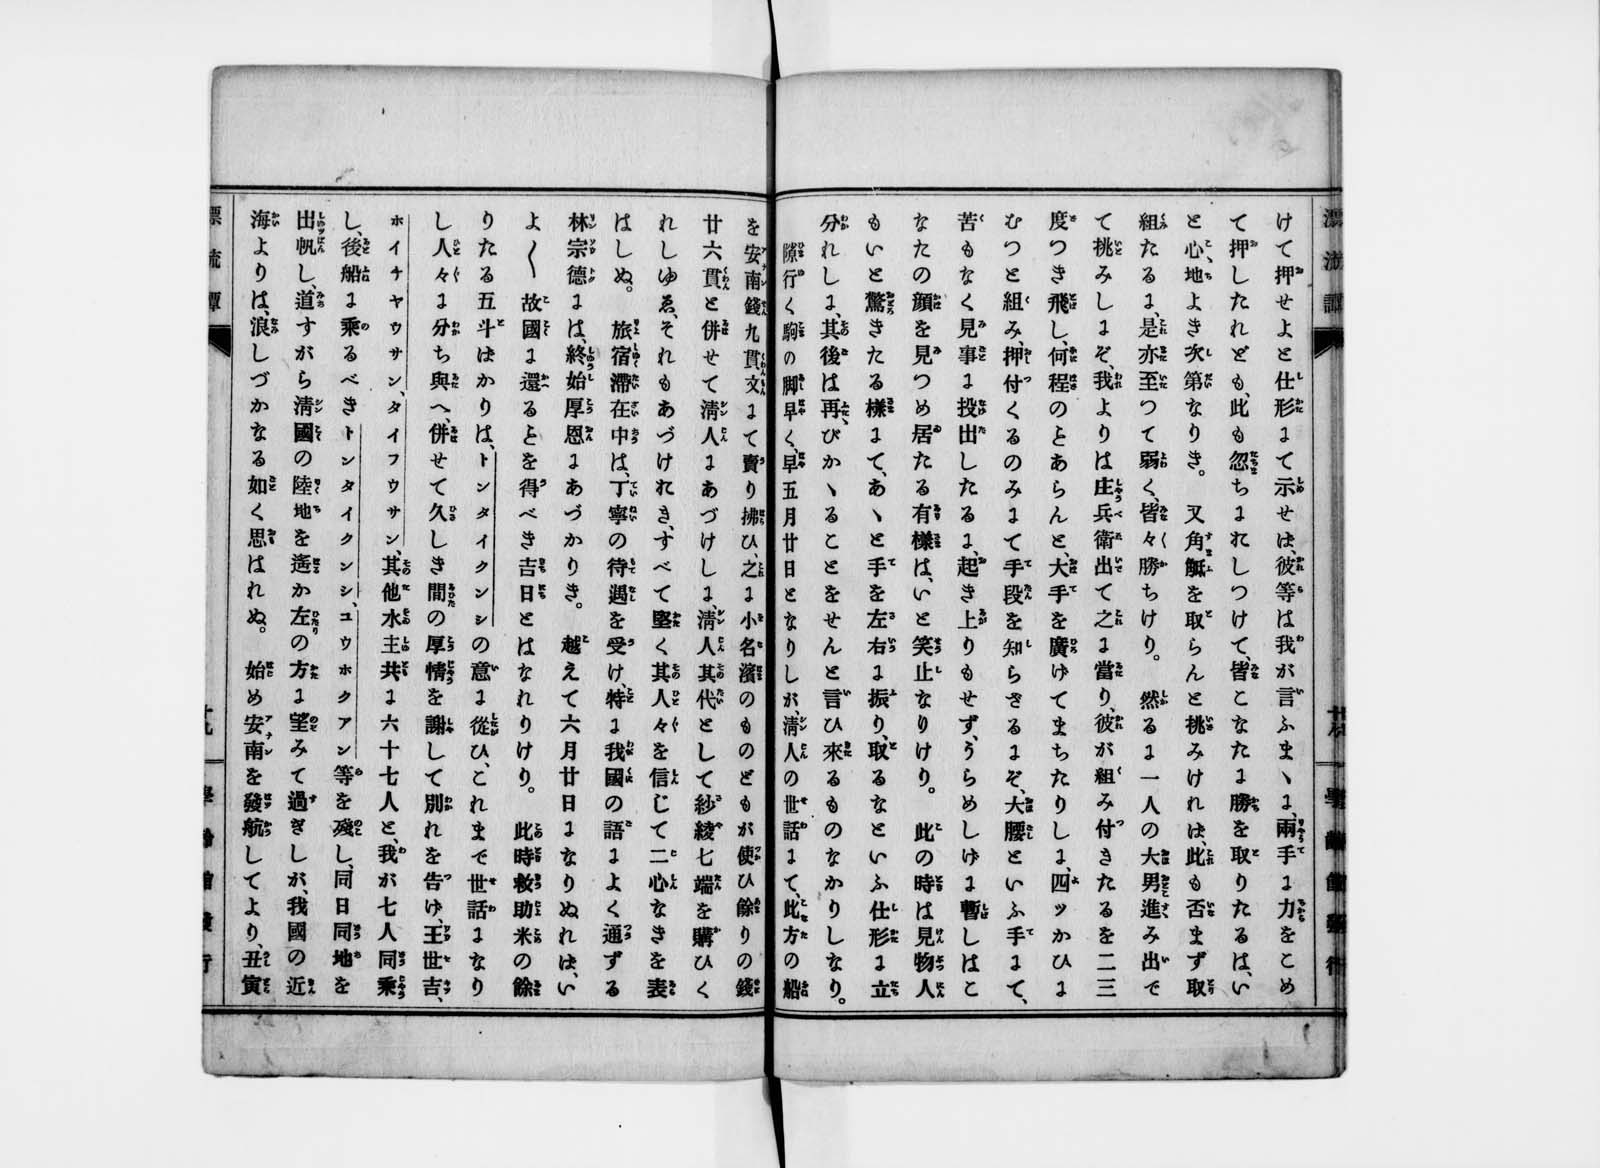 漂流譚
けて押せよと仕形まて示せは、彼等は我が言ふまゝま、兩手ま力をこめ
て押したれども、此も忽ちまれしつけて、皆こなたま勝を取りたるは、い
と心地よき次第なりき。　又角觝を取らんと挑みけれは、此も否まず取
組たるま、是亦至つて弱く、皆々勝ちけり。　然るま一人の大男進み出で
て挑みしまぞ、我よりは庄兵衛出て之ま當り、彼が組み付きたるを二三
度つき飛し、何程のとあらんと、大手を廣げてまちたりしま、四ッかひま
むつと組み、押付くるのみまて手段を知らさるまぞ、大腰といふ手まて、
苦もなく見事ま投出したるま、起き上りもせず、うらめしげま暫しはこ
なたの顔を見つめ居たる有樣は、いと笑止なりけり。　此の時は見物人
もいと驚きたる樣まて、あゝと手を左右ま振り、取るなといふ仕形ま立
分れしま、其後は再びかゝることをせんと言ひ來るものなかりしなり。
隙行く駒の脚早く、早五月廿日となりしが、淸人の世話まて、此方の船
を安南錢九貫文まて賣り拂ひ、之ま小名濱のものどもが使ひ餘りの錢
廿六貫と併せて淸人まあづけしま、淸人其代として紗綾七端を購ひく
れしゆゑ、それもあづけれき、すべて堅く其人々を信じて二心なきを表
はしぬ。　旅宿滯在中は、丁寧の待遇を受け、特ま我國の語まよく通ずる
林宗德まは、終始厚恩まあづかりき。　越えて六月廿日まなりぬれは、い
よ〳〵故國ま還るとを得べき吉日とはなれりけり。　此時救助米の餘
りたる五斗はかりは、トンタイクンシの意ま從ひ、これまで世話まなり
し人々ま分ち與へ、併せて久しき間の厚情を謝して別れを告げ、王世吉、
ホイチヤウサン、タイフウサン、其他水主共ま六十七人と、我が七人同乘
し、後船ま乘るべきトンタイクンシ、ユウホクアン等を殘し、同日同地を
出帆し、道すがら淸國の陸地を遙か左の方ま望みて過ぎしが、我國の近
海よりは、浪しづかなる如く思はれぬ。　始め安南を發航してより、丑寅
漂流譚
十九